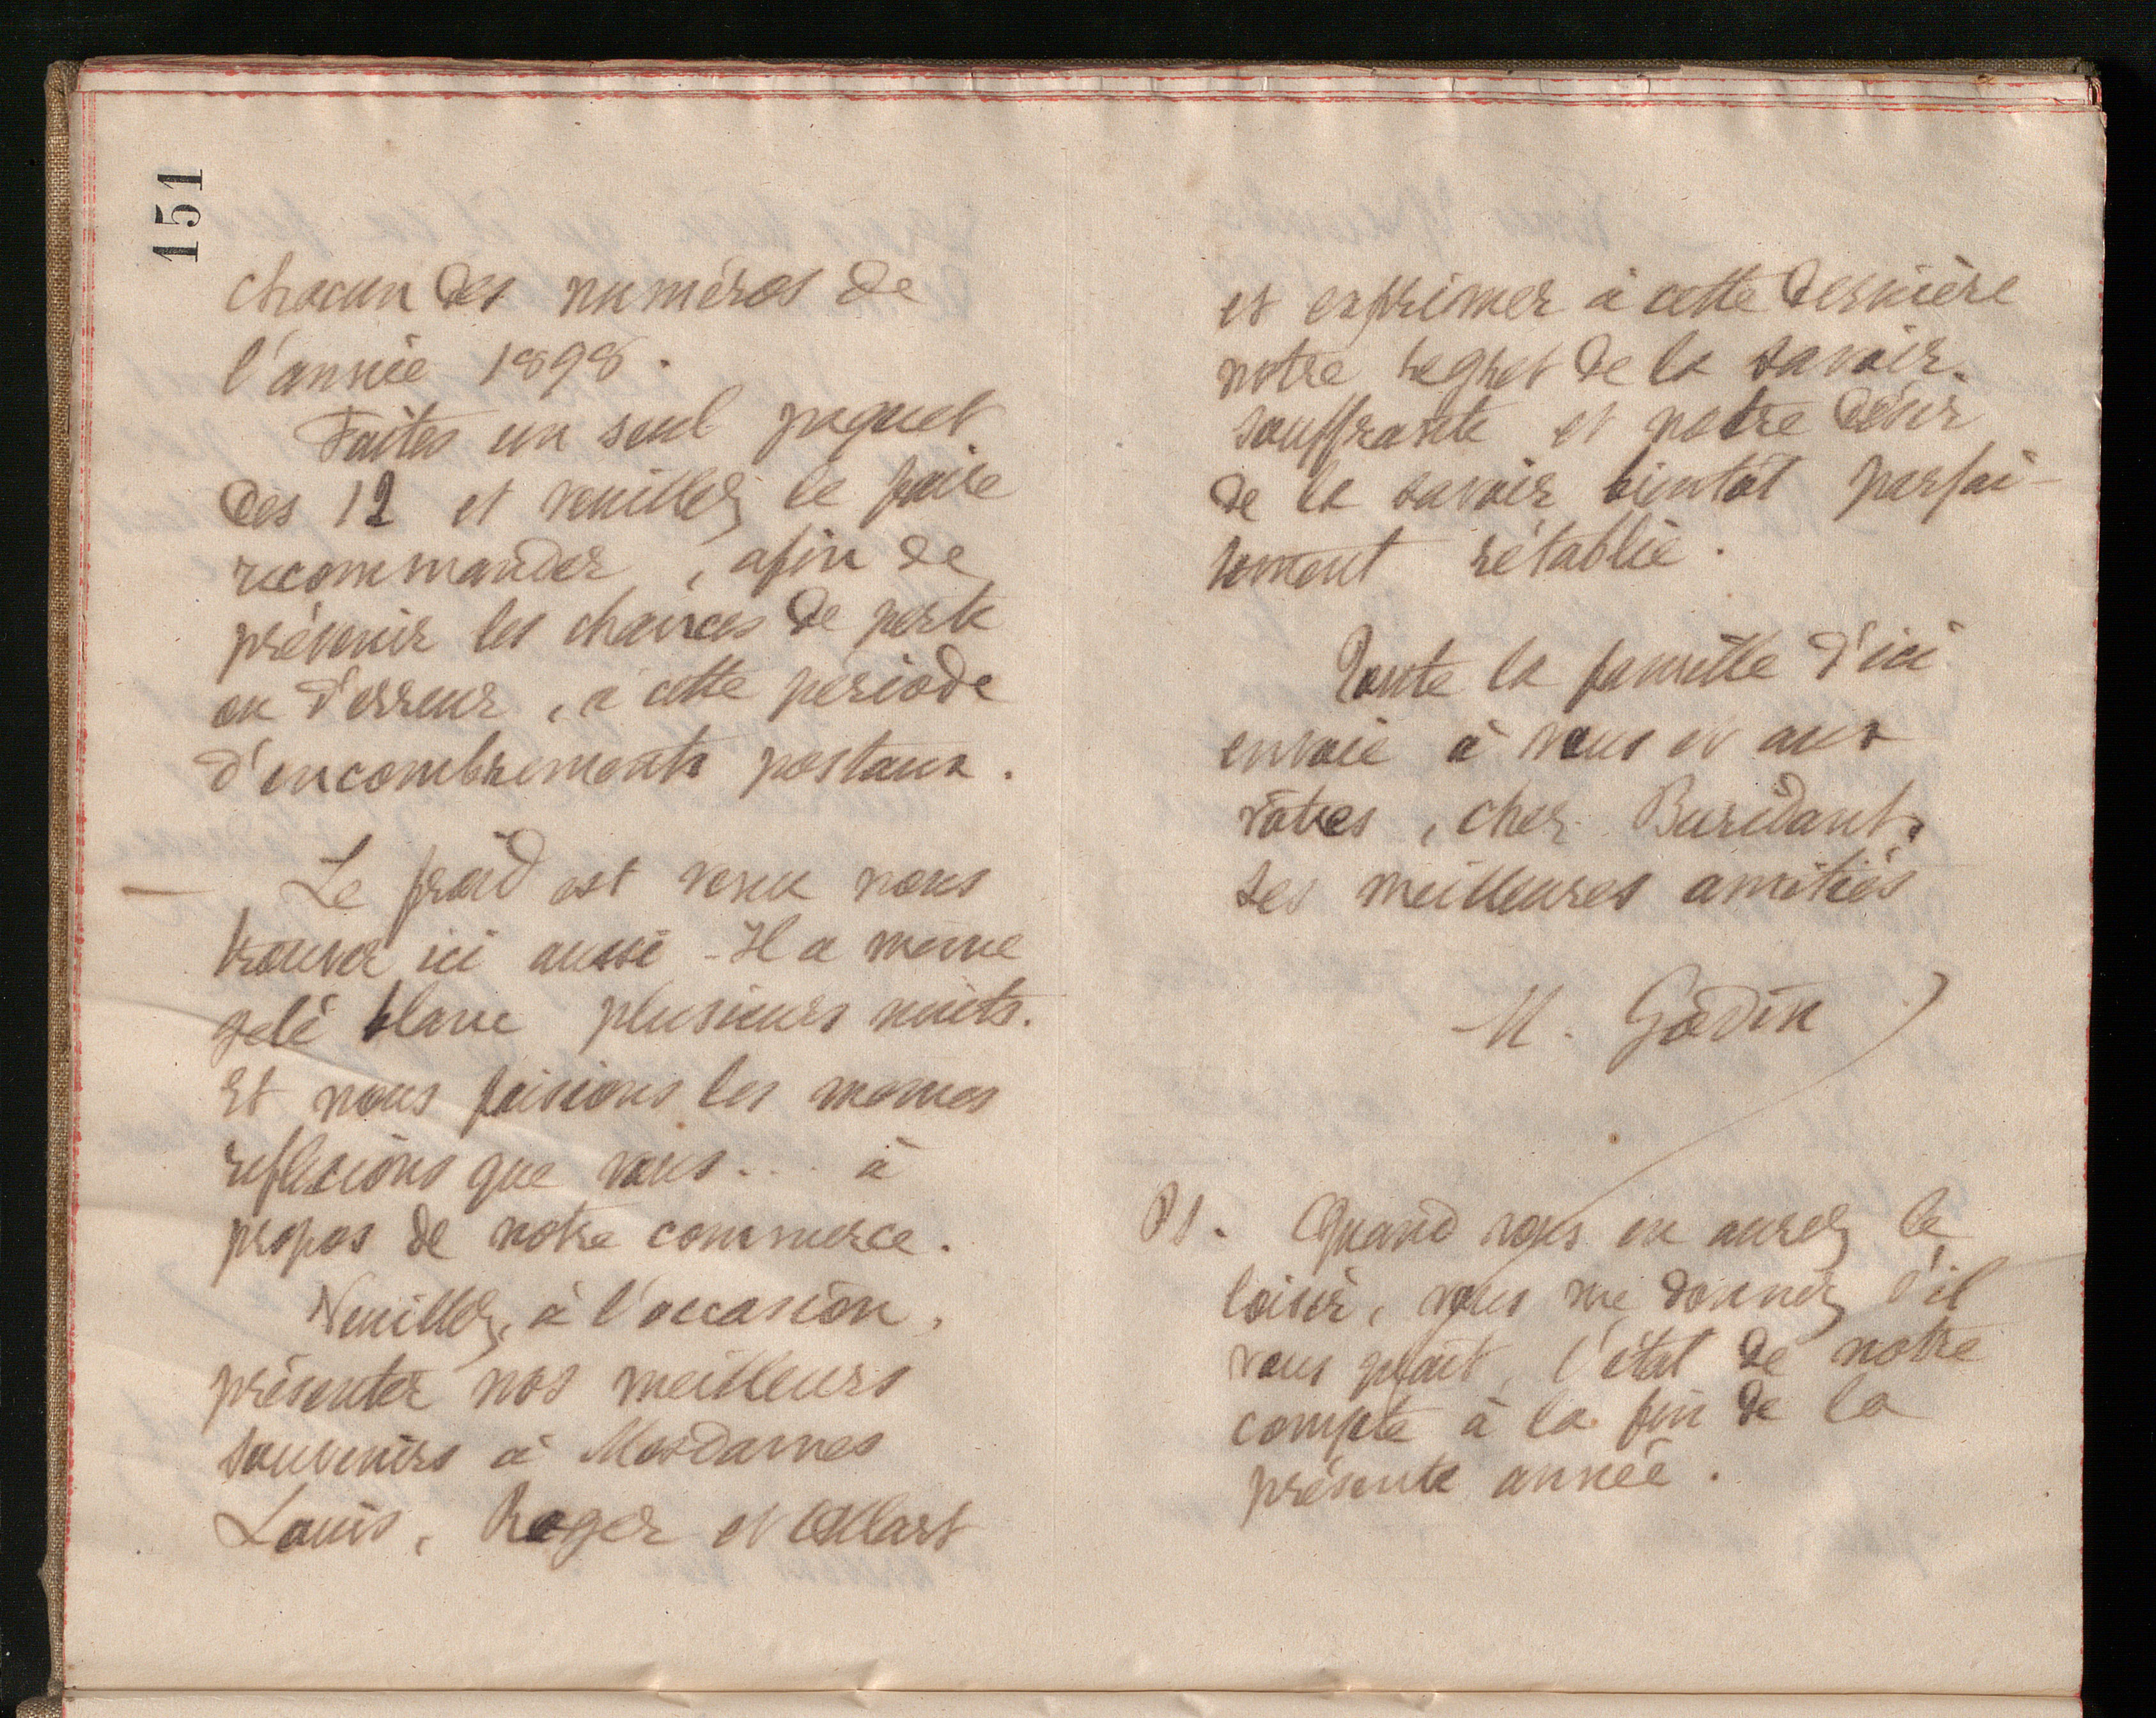 151
chacun des numéros de
l'année 1898.
Faites un seul paquet
des 12 et veuillez le faire
recommander, afin de
prévenir les chances de perte
ou d'erreur, à cette période
d'encombrements postaux.
— Le froid est venu nous
trouver ici aussi - Il a même
gelé blanc plusieurs nuits.
Et nous faisions les mêmes
reflexions que vous... à
propos de notre commerce.
Veuillez, à l'occasion,
présenter nos meilleurs
souvenirs à Mesdames
Louis, Roger et Allart
et exprimer à cette dernière
notre regret de la savoir
souffrante et notre désir
de la savoir bientôt parfai-
tement rétablie.
Toute la famille d'ici
envoie à vous et aux
vôtres, cher Buridant,
ses meilleures amitiés
M. Godin
PS. Quand vous en aurez le
loisir, vous me donnerez s'il
vous plaît, l'état de notre
compte à la fin de la
présente année.